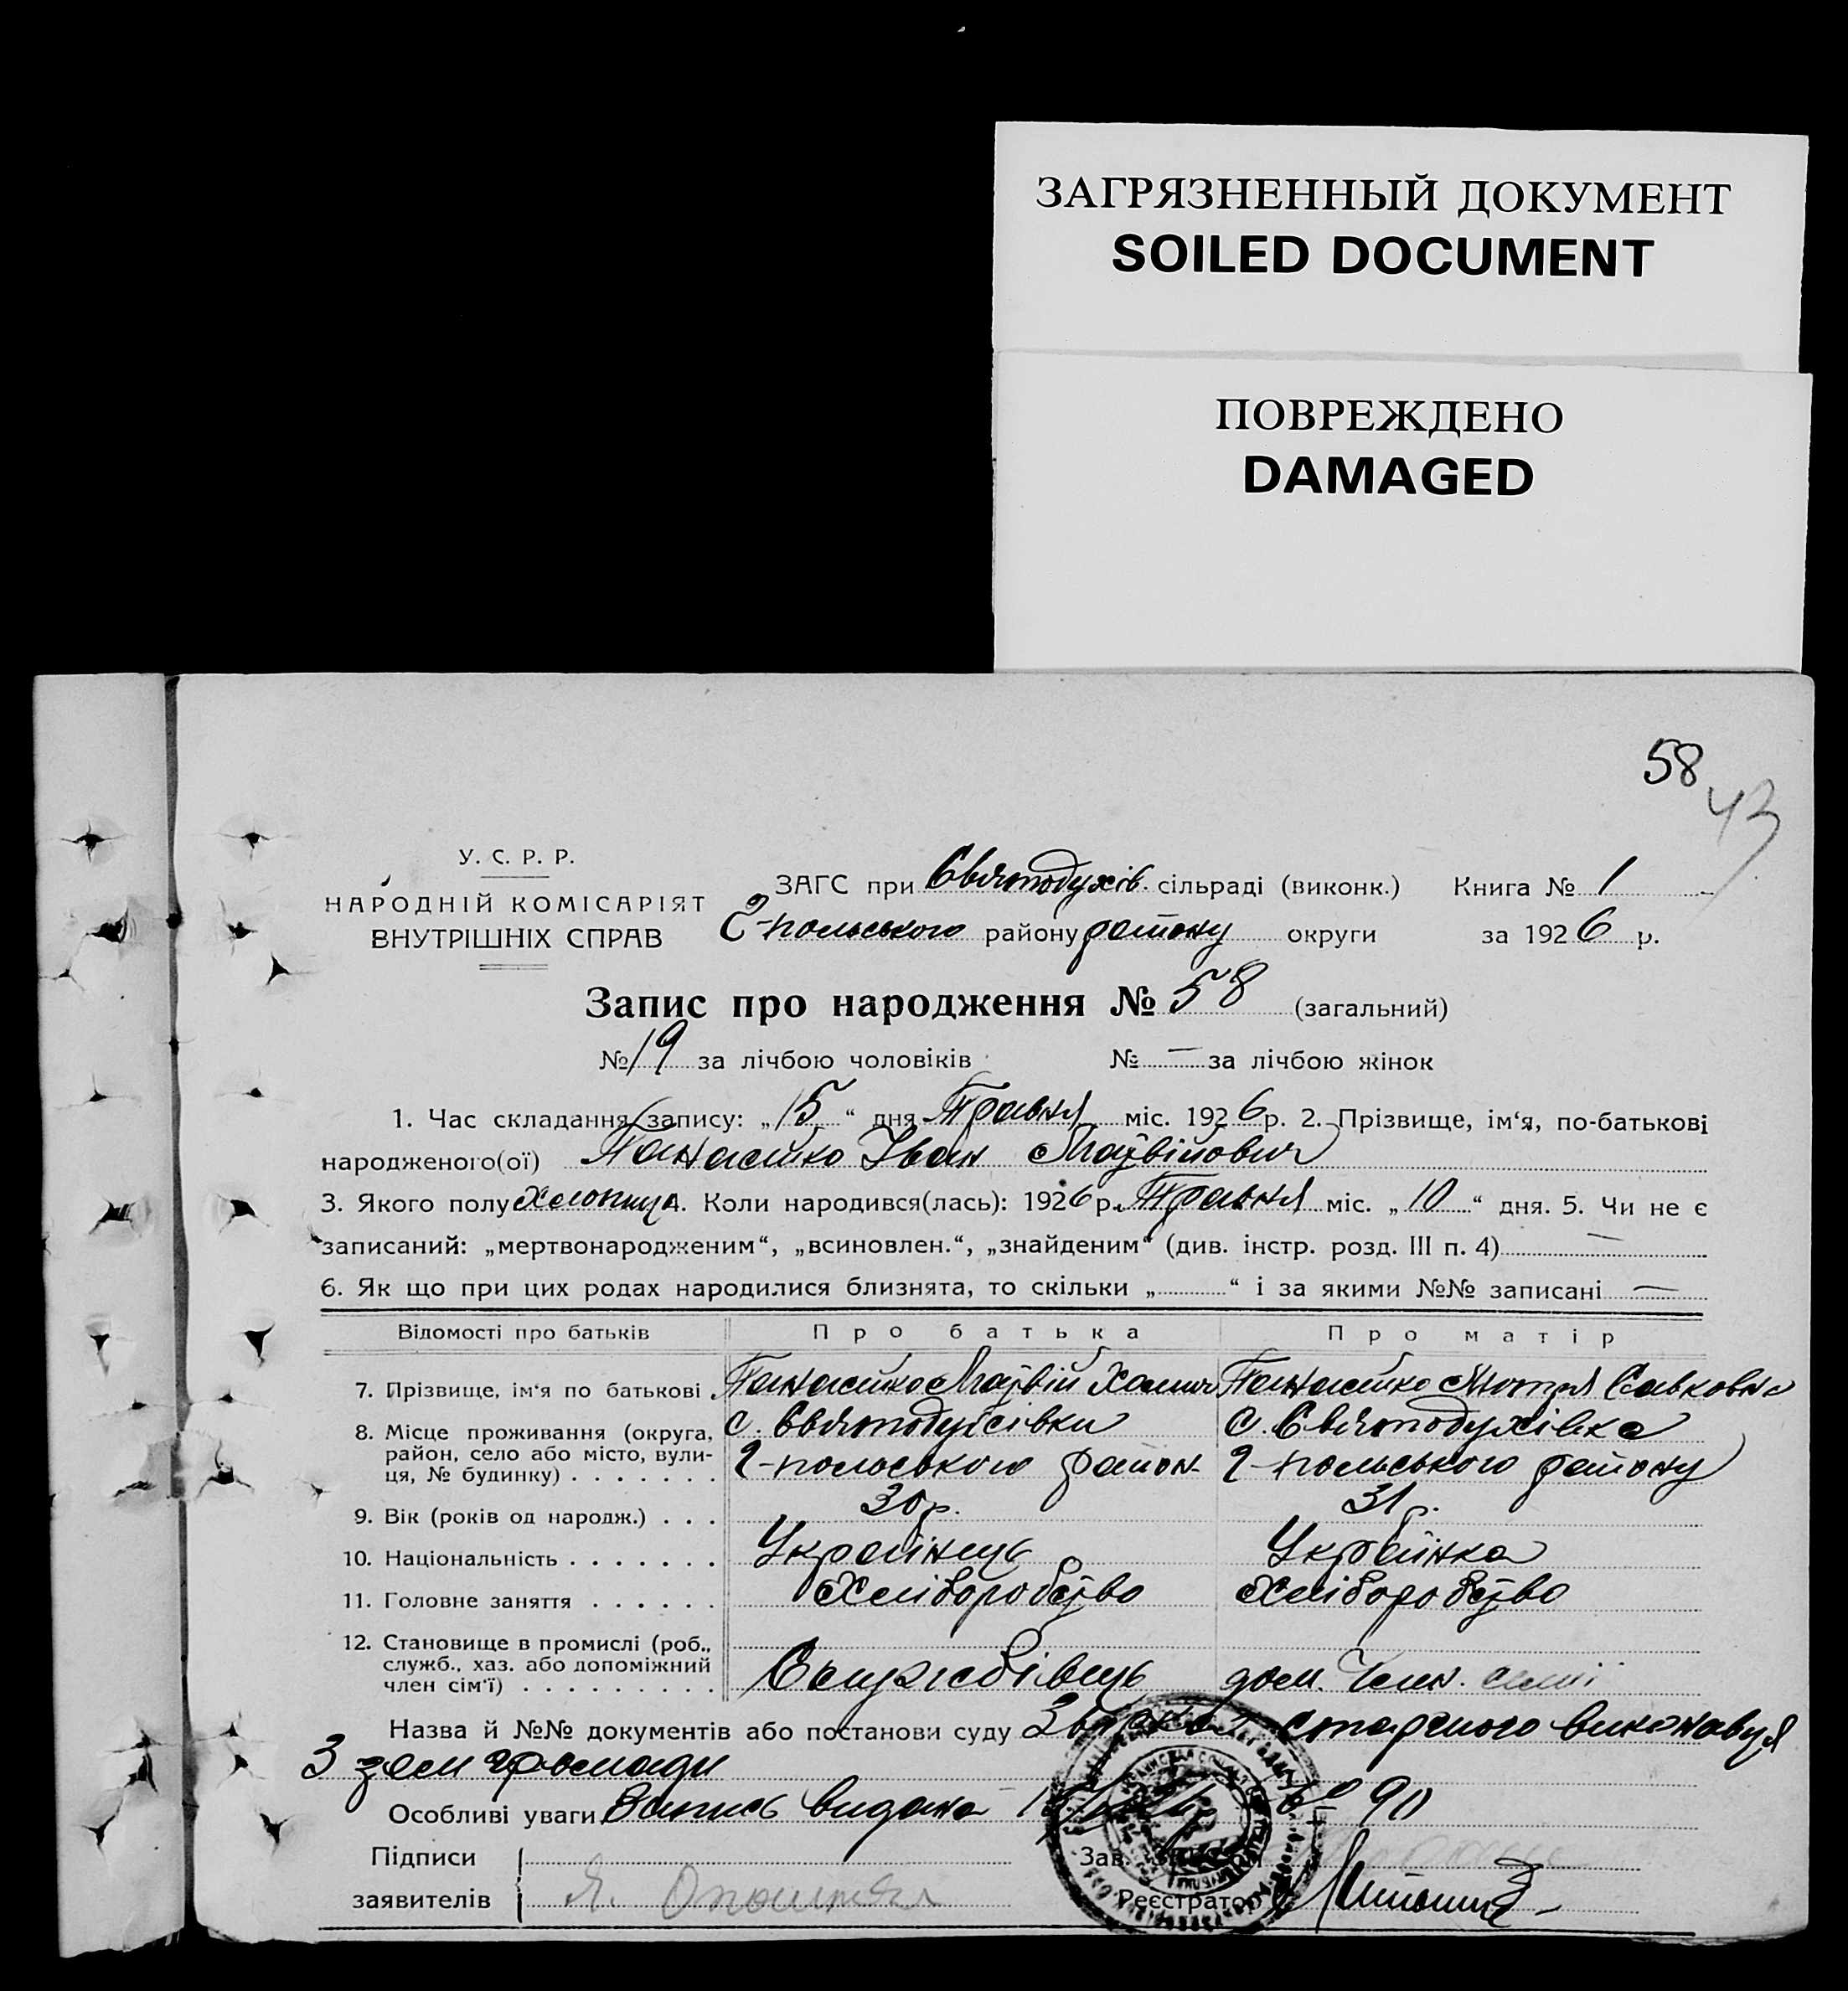 ЗАГРЯЗНЕННЫЙ ДОКУМЕНТ
SOILED DOCUMENT
ПОВРЕЖДЕНО
DAMAGED
58
43
У. С. Р. Р.
НАРОДНІЙ КОМІСАРІЯТ
ВНУТРІШНІХ СПРАВ
ЗАГС при Святодухів. сільраді (виконк.) Книга № 1
2-польського району району округи за 1926 р.
Запис про народження № 58 (загальний)
№ 19 за лічбою чоловіків № — за лічбою жінок
1. Час складання запису: „15“ дня Травня міс. 1926 р. 2. Прізвище, ім‘я, по-батькові
народженого(ої) Панасейко Іван Матвійович
3. Якого полу Хлопець 4. Коли народився(лась): 1926 р. Травня міс. „10“ дня. 5. Чи не є
записаний: „мертвонародженим“, „всиновлен.“, „знайденим“ (див. інстр. розд. III п. 4) —
6. Як що при цих родах народилися близнята, то скільки „ “ і за якими №№ записані —
Відомості про батьків Про батька Про матір
7. Прізвище, ім‘я по батькові Панасейко Матвій Панасейко Савковна
8. Місце проживання (округа, с. Святодухівки с. Святодухівка
район, село або місто, вули-
ця, № будинку) 2-польського район 2-польського району
9. Вік (років од народж.) 30 р. 31 р.
10. Національність Українець Українка
11. Головне заняття Хліборобство Хліборобство
12. Становище в промислі (роб.,
служб., хаз. або допоміжний
член сім‘ї) дом. Член. семї
Назва й №№ документів або постанови суду старшого виконавця
З зем громади
Особливі уваги Запись видана
Підписи
заявителів
Зав.
Реєстратор